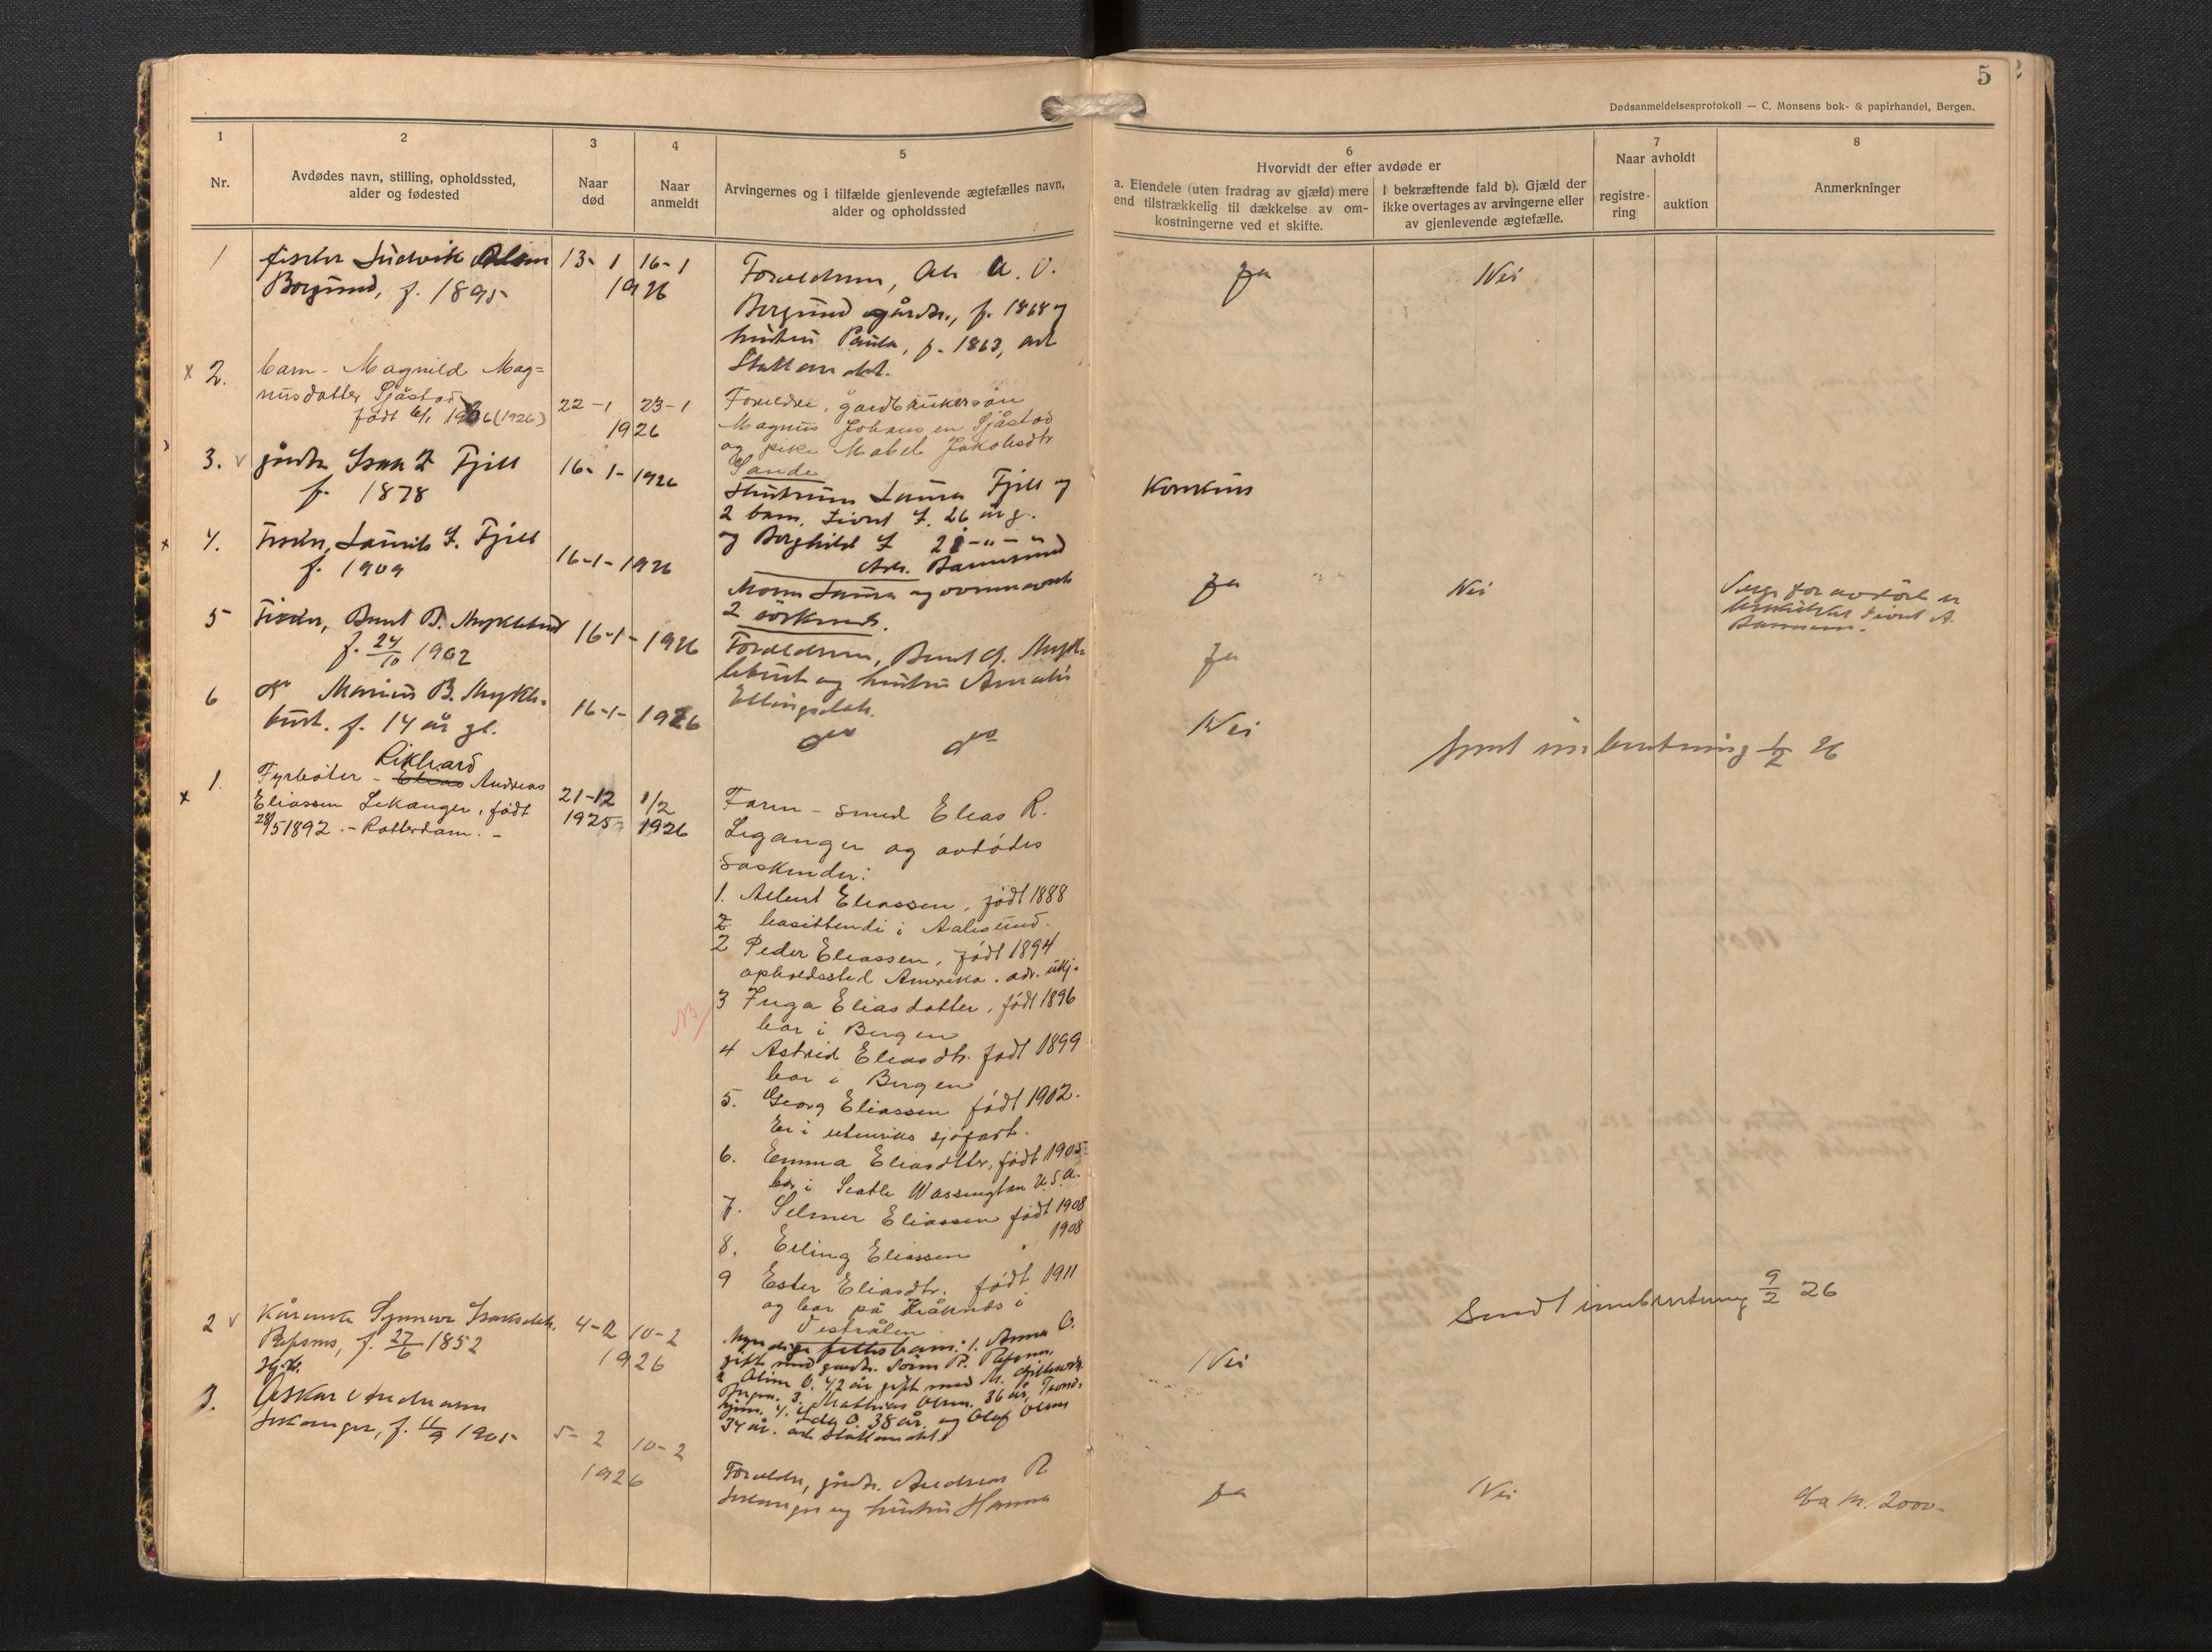 5
Dødsanmeldelsesprotokoll — C. Monsens bok- & papirhandel, Bergen.
1
2
3
4
5
6
7
8
Nr.
Avdødes navn, stilling, opholdssted,
alder og fødested
Naar
død
Naar
anmeldt
Arvingernes og i tilfælde gjenlevende ægtefælles navn,
alder og opholdssted
Hvorvidt der efter avdøde er
a. Eiendele (uten fradrag av gjæld) mere
end tilstrækkelig til dækkelse av om-
kostningerne ved et skifte.
I bekræftende fald b). Gjæld der
ikke overtages av arvingerne eller
av gjenlevende ægtefælle.
Naar avholdt
registre-
ring
auktion
Anmerkninger
1
fisker Ludvik
Borgund, f. 1895
13-1 16-1
1926
Forældrene, A. O.
Borgund gårdbr., f. 1868 og
hustru Paula, f. 1863, adr
Stattlandet.
Ja
Nei
x 2.
barn - Magnild Mag=
nusdatter Sjåstad
født 6/1 1926 (1926)
22-1 23-1
1926
Forældre, gardbrukersøn
Magnus Johansen Sjåstad
og pike Mabel Jakobsdtr
Sande
3. v gårdbr. Isak Z Fjell
f. 1878
16-1-1926
Hustruen Laura Fjell og
2 barn, Sivert I. 26 år g.
og Borghild I 21 -"-"
Adr. Bannesund
Konkurs
x 4. Fisker, Laurits I. Fjell
f. 1909
16-1-1926
Moren Laura og ovennævnte
2 søskend.
Ja
Nei
Verge for avdøde er
Sivert A.
5 Fisker, Bernt B. Myklebust
f. 24/10 1902
16-1-1926
Forældrene, Bernt G. Mykle
lebust og hustru Amalie
Ellingsdatr.
Ja
6 do Marius B. Mykle-
bust. f. 14 år gl.
16-1-1926
do do
Nei
Sendt inberetning 1/2 26
x 1.
Rikhard
Fyrbøter - Elias Andreas
Eliassen Lekanger, født
28/5 1892. - Rotterdam. -
21-12 1/2
1925 1926
Faren - smed Elias R.
Leganger og avdødes
søskender:
1. Albert Eliassen, født 1888
2 bosittende i Aalesund.
2 Peder Eliassen, født 1894
opholdssted Amerika. adr. ukj.
NB
3 Inga Eliasdatter, født 1896
bor i Bergen
4 Astrid Eliasdtr. født 1899
bor i Bergen
5. Georg Eliassen født 1902.
Er i utenriks sjøfart.
6. Emma Eliasdtter, født 1905
bor i Seatle Wassington U.S.A.
7. Selmer Eliassen født 1908
8. Erling Eliassen " 1908
9 Ester Eliasdtr. født 1911
og bor på Kråknes i
Vestrålen
Sendt innberetning 9/2 26
2 v Kårenke Synnøve Isaksdatr.
Refsnes, f. 27/6 1852
4-2 10-2
1926
Myndige fellesbarn: 1. Anna O.
gift med gardbr. Søren R. Refsnes,
2 Aline O. 42 år gift med M.
Bergen. 3. Mathias Olsen. 36 år, Trond-
hjem. 4. Ida O. 38 år. og Olaf Olsen
34 år. adr Stattlandet
Nei
3. Oskar Andreassen
Lekanger, f. 11/9 1905
5-2 10-2
1926
Forældre, gårdbr. Andreas R.
Lekanger og hustru Hanna
Ja
Nei
Ca kr. 2000-